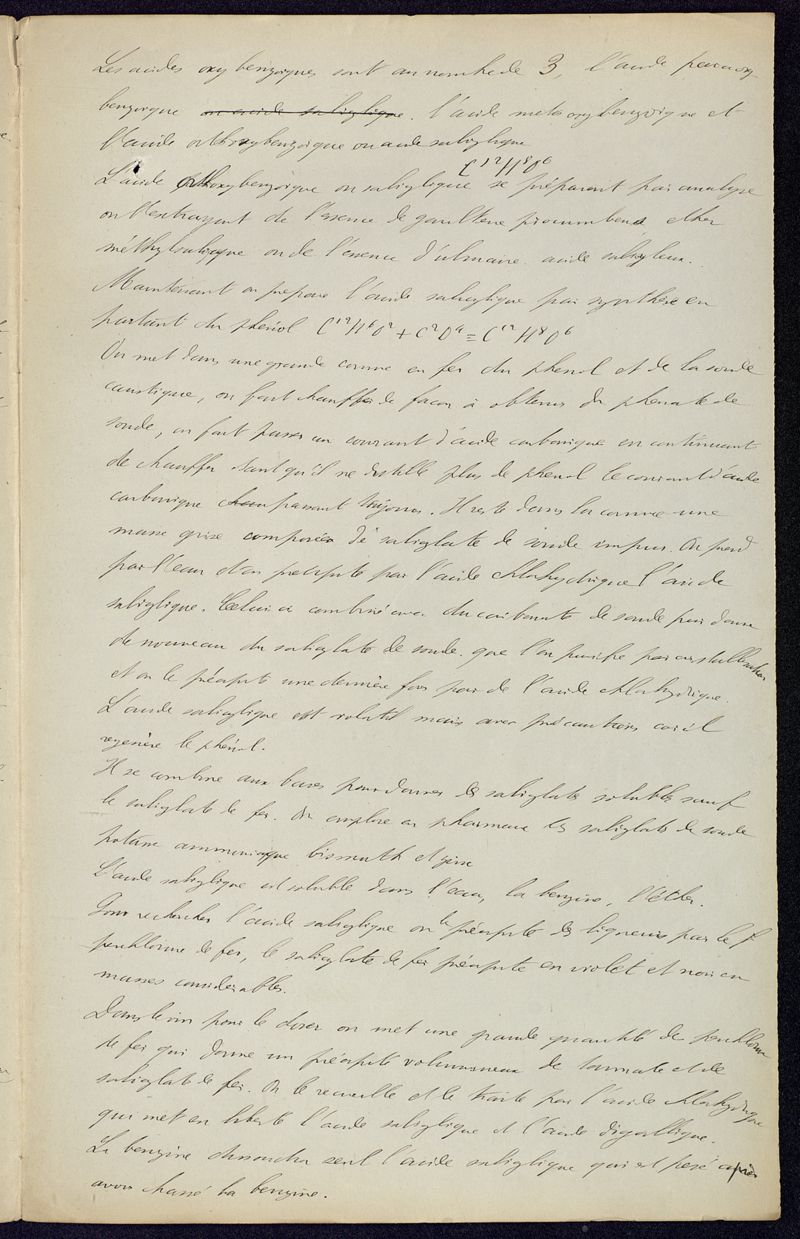 Les acides oxybenzoïques sont au nombre de 3, l'acide paraoxy-
benzoïque ou acide saliylique. l'acide metaoxybenzoïque et
l'acide orthoxybenzoïque ou acide saliylique
C12H8O6
L'acide orthoxybenzoïque ou saliylique se préparait par analyse
en l'extrayant de l'essence de gaultheria procumbens éther
méthylsalicylique ou de l'essence d'ulmaire acide salicyleux.
Maintenant on prepare l'acide saliylique par synthèse en
partant du phénol C12H6O2 + C2O4 = C12H8O6
On met dans une grande cornue en fer du phenol et de la soude
caustique, on fait chauffer de façon à obtenir du phenate de
soude, on fait passer un courant d'acide carbonique en continuant
de chauffer tant qu'il ne distille plus de phenol le courant d'acide
carbonique passant toujours. Il reste dans la cornue une
masse grise composée de saliylate de soude impur. On prend
par l'eau et on précipite par l'acide chlorhydrique l'acide
saliylique. Celui ci combiné avec du carbonate de soude pur donne
de nouveau du salicylate de soude que l'on purifie par cristallisation
et on le précipite une dernière fois par de l'acide chlorhydrique.
L'acide saliylique est volatil mais avec précautions car il
regenère le phénol.
Il se combine aux bases pour donner des saliylates solubles sauf
le saliylate de fer. On emploie en pharmacie les saliylates de soude
potasse ammoniaque bismuth et
L'acide saliylique est soluble dans l'eau, la benzine, l'éther.
Pour rechercher l'acide saliylique on le précipite des liqueurs par le
perchlorure de fer, le salicylate de fer précipite en violet et noir en
masses considerables.
Dans le vin pour le doser on met une grande quantité de perchlorure
de fer qui donne un précipité volumineux de tannate et de
saliylate de fer. On le recueille et le traite par l'acide chlorhydrique
qui met en liberté l'acide saliylique et l'acide digallique.
La benzine dissoudra seul l'acide saliylique qui est pesé après
avoir chassé la benzine.